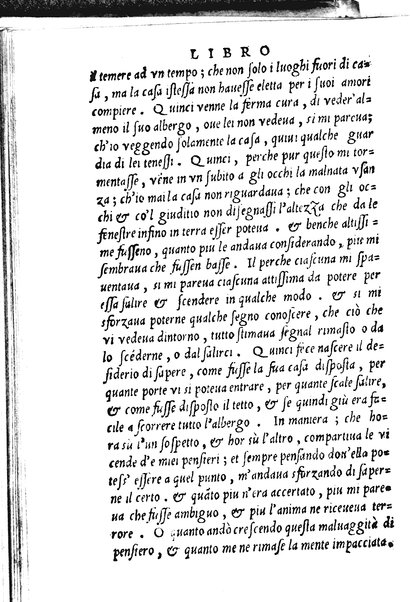 LIBRO
il temere ad vn tempo; che non solo i luoghi fuori di ca-
sa, ma la casa istessa non hauesse eletta per i suoi amori
compiere. Quinci venne la ferma cura, di veder'al-
meno il suo albergo, oue lei non vedeua, si mi pareua;
ch'io veggendo solamente la casa, quiui qualche guar
dia di lei tenessi. Quinci, perche pur questo mi tor-
mentasse, vēne in vn subito a gli occhi la malnata vsan
za; ch'io mai la casa non riguardaua; che con gli oc-
chi & co'l giuditio non disegnassi l'altezza che da le
fenestre infino in terra esser poteua. & benche altissi-
me fusseno, quanto piu le andaua considerando, piu mi
sembraua che fussen basse. Il perche ciascuna mi spa-
uentaua, si mi pareua ciascuna attissima da potere per
essa salire & scendere in qualche modo. & si mi
sforzaua poterne qualche segno conoscere, che ciò che
vi vedeua dintorno, tutto stimaua segnal rimasto o da
lo scéderne, o dal salirci. Quinci fece nascere il de-
siderio di sapere, come fusse la sua casa disposta, per
quante porte vi si poteua entrare, per quante scale salire,
& come fusse disposto il tetto, & se quindi giù era fa-
cile a scorrere tutto l'albergo. In maniera; che ho-
ra sù l'un sospetto, & hor sù l'altro, compartiua le vi
cende d'e miei pensieri; et sempre pensando dou'ella po-
tess' essere a quel punto, m'andaua sforzando di saper-
ne il certo. & quāto piu n'era accertato, piu mi pare-
ua che fusse ambiguo, & piu l'anima ne riceueua ter-
rore. O quanto andò crescendo questa maluaggità di
pensiero, & quanto me ne rimase la mente impacciata.